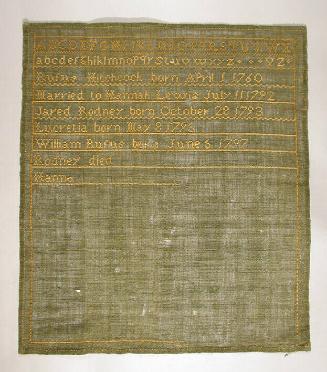 ABCDEFGHIKLMNOPQRSTUVWXYZ
abcdefghiklmnopqrstuvwxyz
Rufus Hitchcock born April 1, 1760
Married to Hannah Lewis July 11 1792
Jared Rodney born October 28, 1793
Lucretia born May 8 1796
William Rufus born June 6, 1797
Rodney died
Hanna